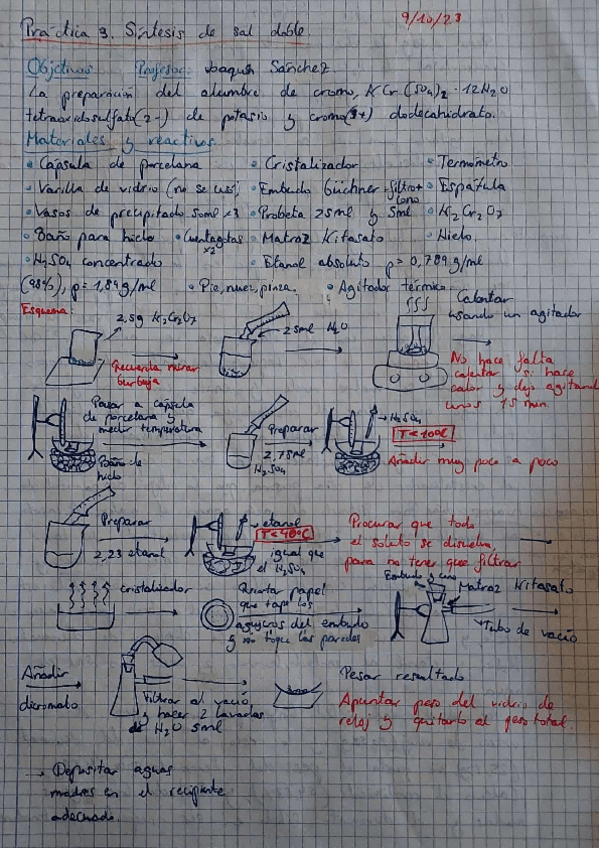 9/10/23
Práctica 3. Síntesis de sal doble.
Objetivos Profesor: Joaquín Sánchez
La preparación del alumbre de cromo, KCr(SO4)2·12H2O
tetraoxidosulfato(2-) de potasio y cromo(3+) dodecahidrato.
Materiales y reactivos
• Cápsula de porcelana • Cristalizador • Termómetro
• Varilla de vidrio (no se usó) • Embudo büchner + filtro + cono • Espátula
• Vasos de precipitado 50ml x3 • Probeta 25ml y 5ml • K2Cr2O7
• Baño para hielo • Cuentagotas x2 • Matraz Kitasato • Hielo.
• H2SO4 concentrado • Etanol absoluto ρ= 0,789g/ml
(98%), ρ= 1,84g/ml • Pie, nuez, pinza. • Agitador térmico.
Esquema:
2,5g K2Cr2O7
Recuerda mirar
burbuja
25ml H2O
Calentar
usando un agitador
No hace falta
calentar si hace
calor y dejo agitando
unos 15 min
Pasar a cápsula
de porcelana y
medir temperatura
Baño de
hielo
Preparar
2,75ml
H2SO4
H2SO4
T<10ºC
Añadir muy poco a poco
Preparar
2,23 etanol
etanol
T<40ºC
igual que
el H2SO4
Procurar que todo
el soluto se disuelva,
para no tener que filtrar
cristalizador
papel
que tape los
agujeros del embudo
y no toque las paredes
Embudo y cono
Matraz Kitasato
Tubo de vacío
Añadir
dicromato
Filtrar al vacío
y hacer 2 lavados
de H2O 5ml
Pesar resultado
Apuntar peso del vidrio de
reloj y quitarlo al peso total.
→ Depositar aguas
madres en el recipiente
adecuado.